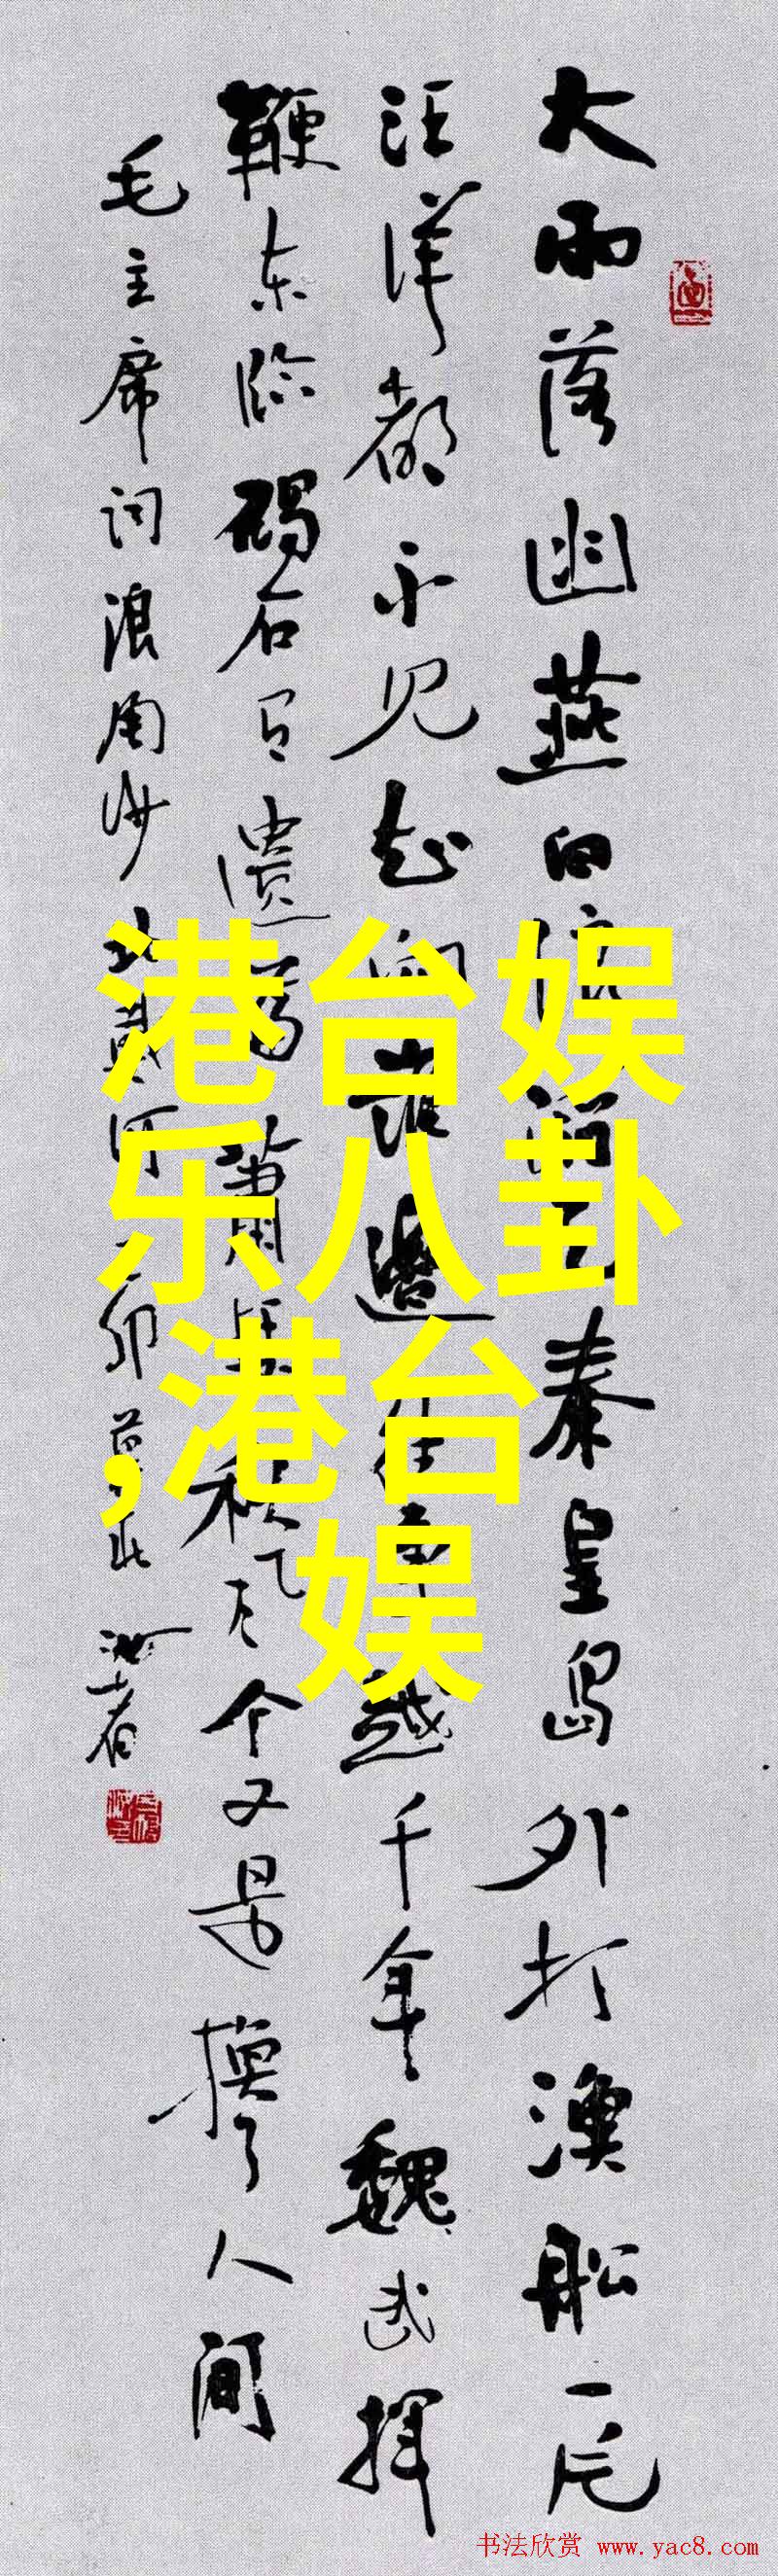 大雨落幽燕白浪滔天秦皇島外打漁船一片
汪洋都不见知向誰邊往事越千年魏武挥
鞭东临碣石有遗篇萧瑟秋风今又是换了人间
毛主席词浪淘沙北戴河
港台娱
乐八卦
,港台
娱
书法欣赏 www.yac8.com